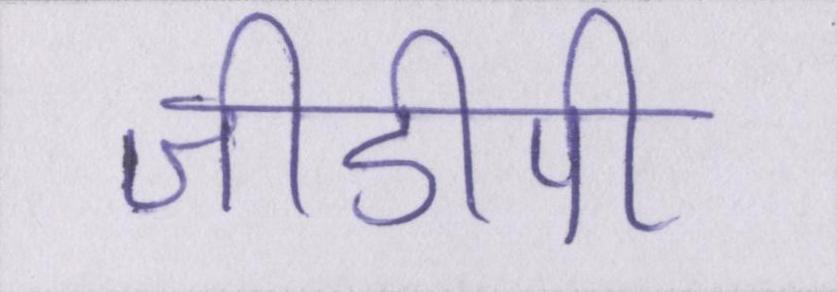 जीडीपी